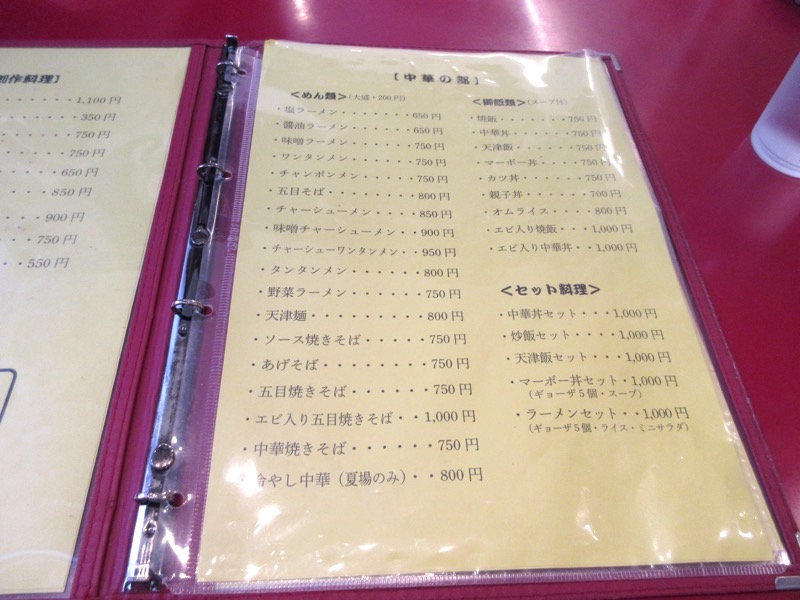 創作料理】
・・・・・・・1,100円
・・・・・・・350円
・・・・・・750円
・・・・・・750円
・・・・・650円
・・・・850円
・・・・900円
・・・750円
・・・550円
【中華の部】
＜めん類＞(大盛＋200円)
・塩ラーメン・・・・・・650円
・醤油ラーメン・・・・・650円
・味噌ラーメン・・・・・750円
・ワンタンメン・・・・・750円
・チャンポンメン・・・・750円
・五目そば・・・・・・・800円
・チャーシューメン・・・850円
・味噌チャーシューメン・・900円
・チャーシューワンタンメン・・950円
・タンタンメン・・・・・・800円
・野菜ラーメン・・・・・・750円
・天津麺・・・・・・・・・800円
・ソース焼きそば・・・・・750円
・あげそば・・・・・・・・750円
・五目焼きそば・・・・・・750円
・エビ入り五目焼きそば・・1,000円
・中華焼きそば・・・・・・750円
・冷やし中華（夏場のみ）・・800円
＜御飯類＞(スープ付)
・焼飯・・・・・・・750円
・中華丼・・・・・・750円
・天津飯・・・・・・750円
・マーボー丼・・・・750円
・カツ丼・・・・・・750円
・親子丼・・・・・・700円
・オムライス・・・・800円
・エビ入り焼飯・・・1,000円
・エビ入り中華丼・・1,000円
＜セット料理＞
・中華丼セット・・・1,000円
・炒飯セット・・・・1,000円
・天津飯セット・・・1,000円
・マーボー丼セット・1,000円
（ギョーザ５個・スープ）
・ラーメンセット・・1,000円
（ギョーザ５個・ライス・ミニサラダ）